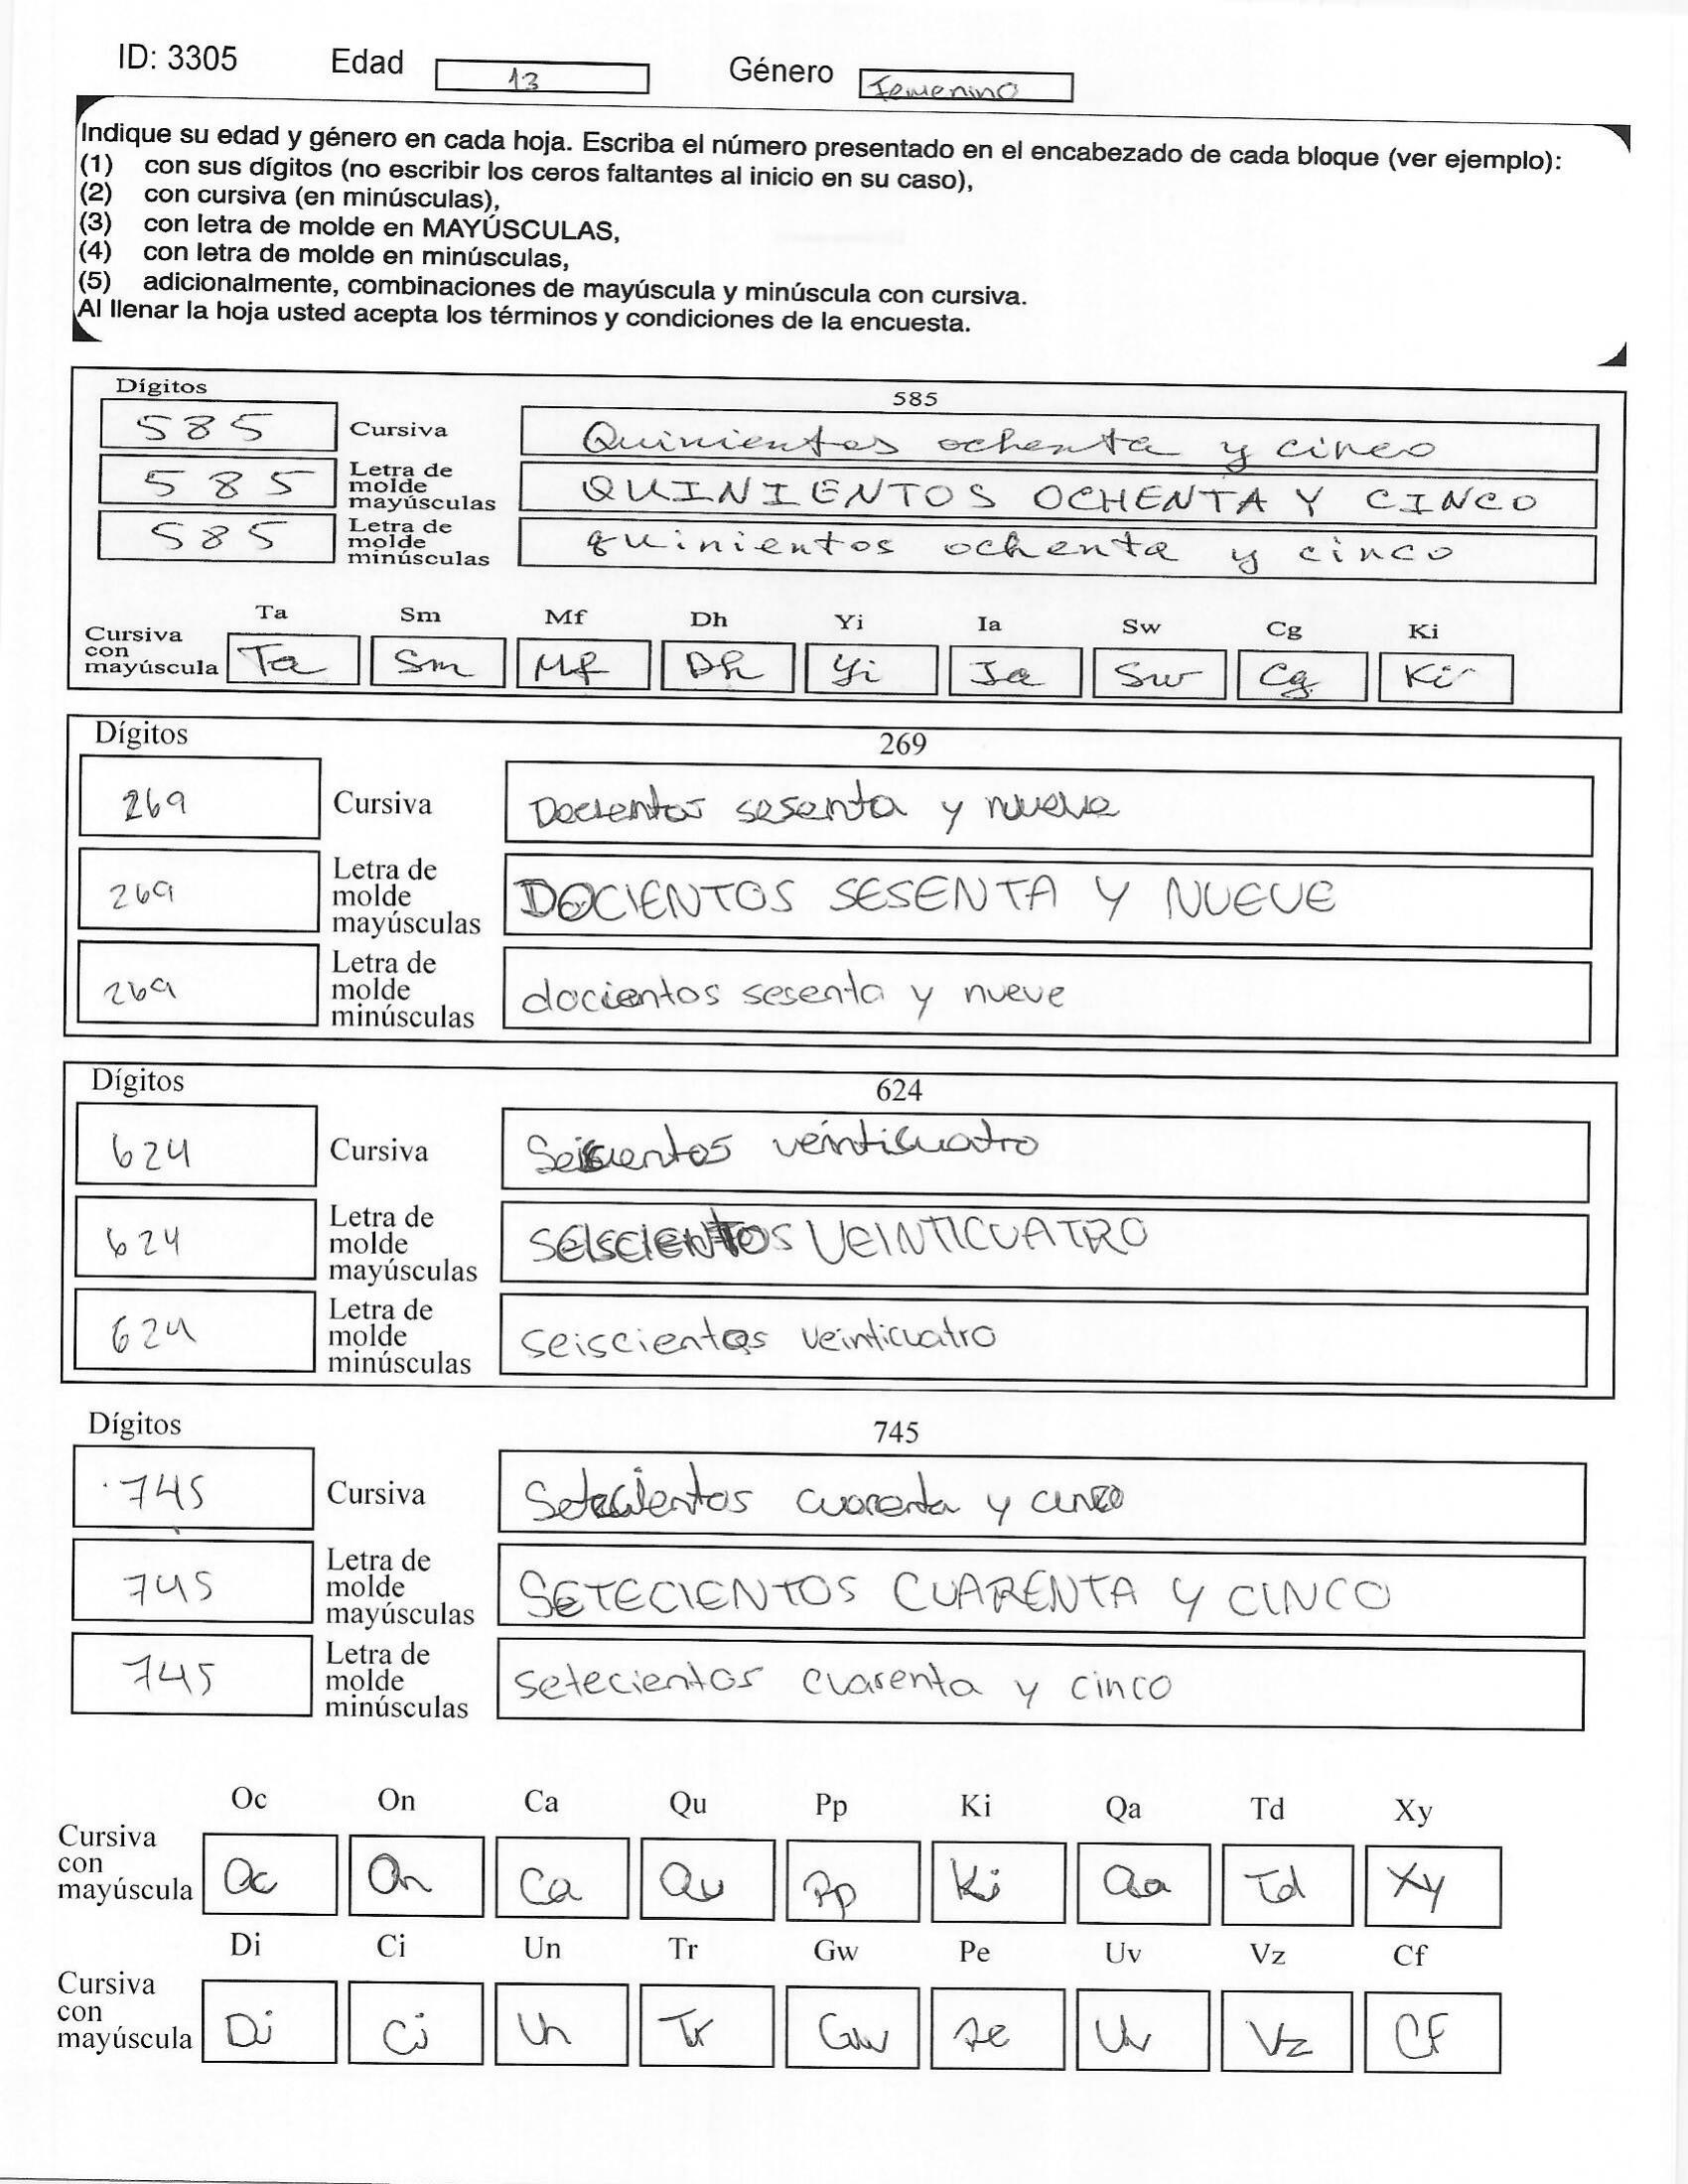 ID: 3305 Edad 13 Género Femenino
Indique su edad y género en cada hoja. Escriba el número presentado en el encabezado de cada bloque (ver ejemplo):
(1) con sus dígitos (no escribir los ceros faltantes al inicio en su caso),
(2) con cursiva (en minúsculas),
(3) con letra de molde en MAYÚSCULAS,
(4) con letra de molde en minúsculas,
(5) adicionalmente, combinaciones de mayúscula y minúscula con cursiva.
Al llenar la hoja usted acepta los términos y condiciones de la encuesta.
Dígitos 585
585 Cursiva Quinientos ochenta y cinco
585 Letra de molde mayúsculas QUINIENTOS OCHENTA Y CINCO
585 Letra de molde minúsculas quinientos ochenta y cinco
Ta Sm Mf Dh Yi Ia Sw Cg Ki
Cursiva con mayúscula Ta Sm Mf Dh Yi Ia Sw Cg Ki
Dígitos 269
269 Cursiva Docientos sesenta y nueve
269 Letra de molde mayúsculas DOCIENTOS SESENTA Y NUEVE
269 Letra de molde minúsculas docientos sesenta y nueve
Dígitos 624
624 Cursiva Seiscientos veinticuatro
624 Letra de molde mayúsculas SEISCIENTOS VEINTICUATRO
624 Letra de molde minúsculas seiscientos veinticuatro
Dígitos 745
745 Cursiva Setecientos cuarenta y cinco
745 Letra de molde mayúsculas SETECIENTOS CUARENTA Y CINCO
745 Letra de molde minúsculas setecientos cuarenta y cinco
Oc On Ca Qu Pp Ki Qa Td Xy
Cursiva con mayúscula Oc On Ca Qu Pp Ki Qa Td Xy
Di Ci Un Tr Gw Pe Uv Vz Cf
Cursiva con mayúscula Di Ci Un Tr Gw Pe Uv Vz Cf